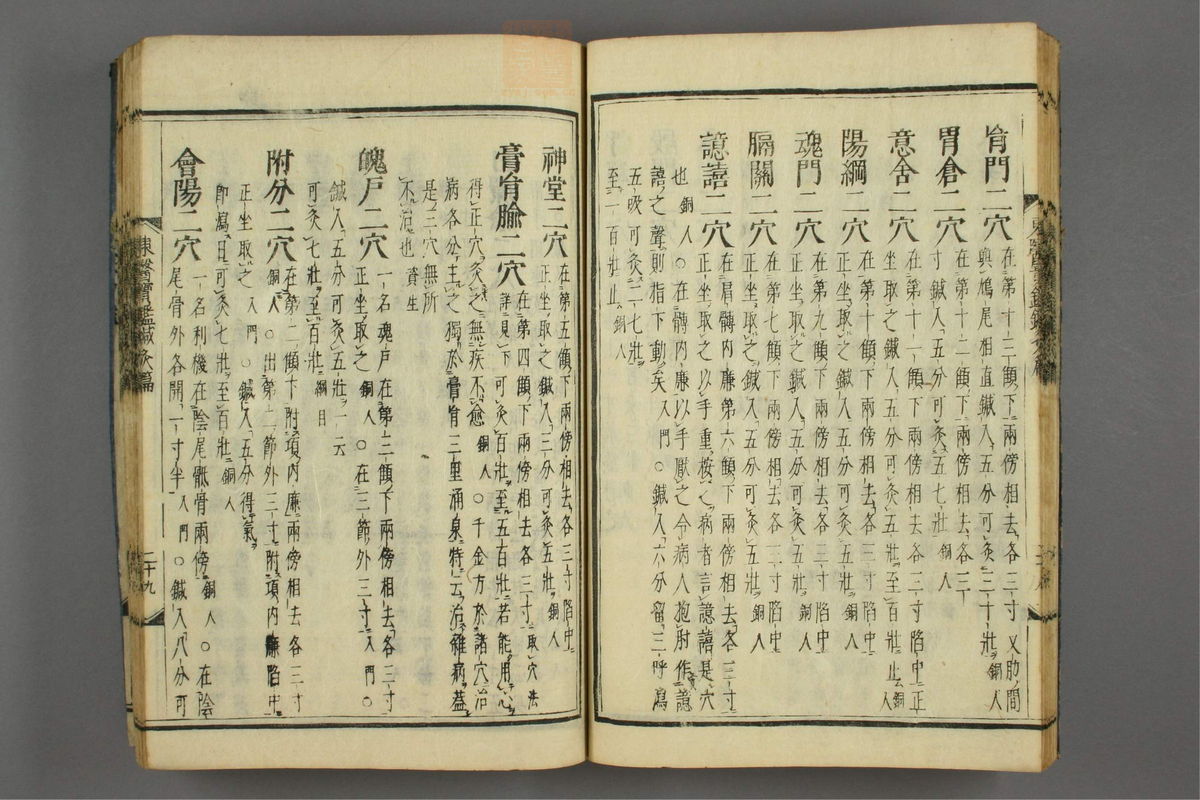 肓門二穴
在第十三顀下兩傍相去各三寸又肋間
與鳩尾相直鍼入五分可灸三十壯銅人
胃倉二穴
在第十二顀下兩傍相去各三寸
鍼入五分可灸五七壯銅人
意舍二穴
在第十一顀下兩傍相去各三寸陷中正
坐取之鍼入五分可灸五壯至百壯止銅人
陽綱二穴
在第十顀下兩傍相去各三寸陷中
正坐取之鍼入五分可灸五壯銅人
魂門二穴
在第九顀下兩傍相去各三寸陷中
正坐取之鍼入五分可灸五壯銅人
膈關二穴
在第七顀下兩傍相去各三寸陷中
正坐取之鍼入五分可灸五壯銅人
譩譆二穴
在肩髆內廉第六顀下兩傍相去各三寸
正坐取之以手重按之病者言譩譆是穴
也銅人○在髆內廉以手厭之令病人抱肘作譩
譆之聲則指下動矣入門○鍼入六分留三呼瀉
五吸可灸二七壯
至一百壯止銅人
神堂二穴
在第五顀下兩傍相去各三寸陷中
正坐取之鍼入三分可灸五壯銅人
膏肓腧二穴
在第四顀下兩傍相去各三寸取穴法
詳見下可灸百壯至五百壯若能用心
得正穴灸之無疾不愈銅人○千金方於諸穴治
病各分主之獨於膏肓三里涌泉特云治雜病蓋
是三穴無所
不治也資生
魄戶二穴
一名魂戶在第三顀下兩傍相去各三寸
正坐取之銅人○在三節外三寸入門○
鍼入五分可灸五壯一云
可灸七壯至百壯綱目
附分二穴
在第二顀下附項內廉兩傍相去各三寸
銅人○出第二節外三寸附項內廉陷中
正坐取之入門○鍼入五分得氣
卽瀉日可灸七壯至百壯銅人
會陽二穴
一名利機在陰尾骶骨兩傍銅人○在陰
尾骨外各開一寸半入門○鍼入八分可
東醫寶鑑鍼灸篇
二十九